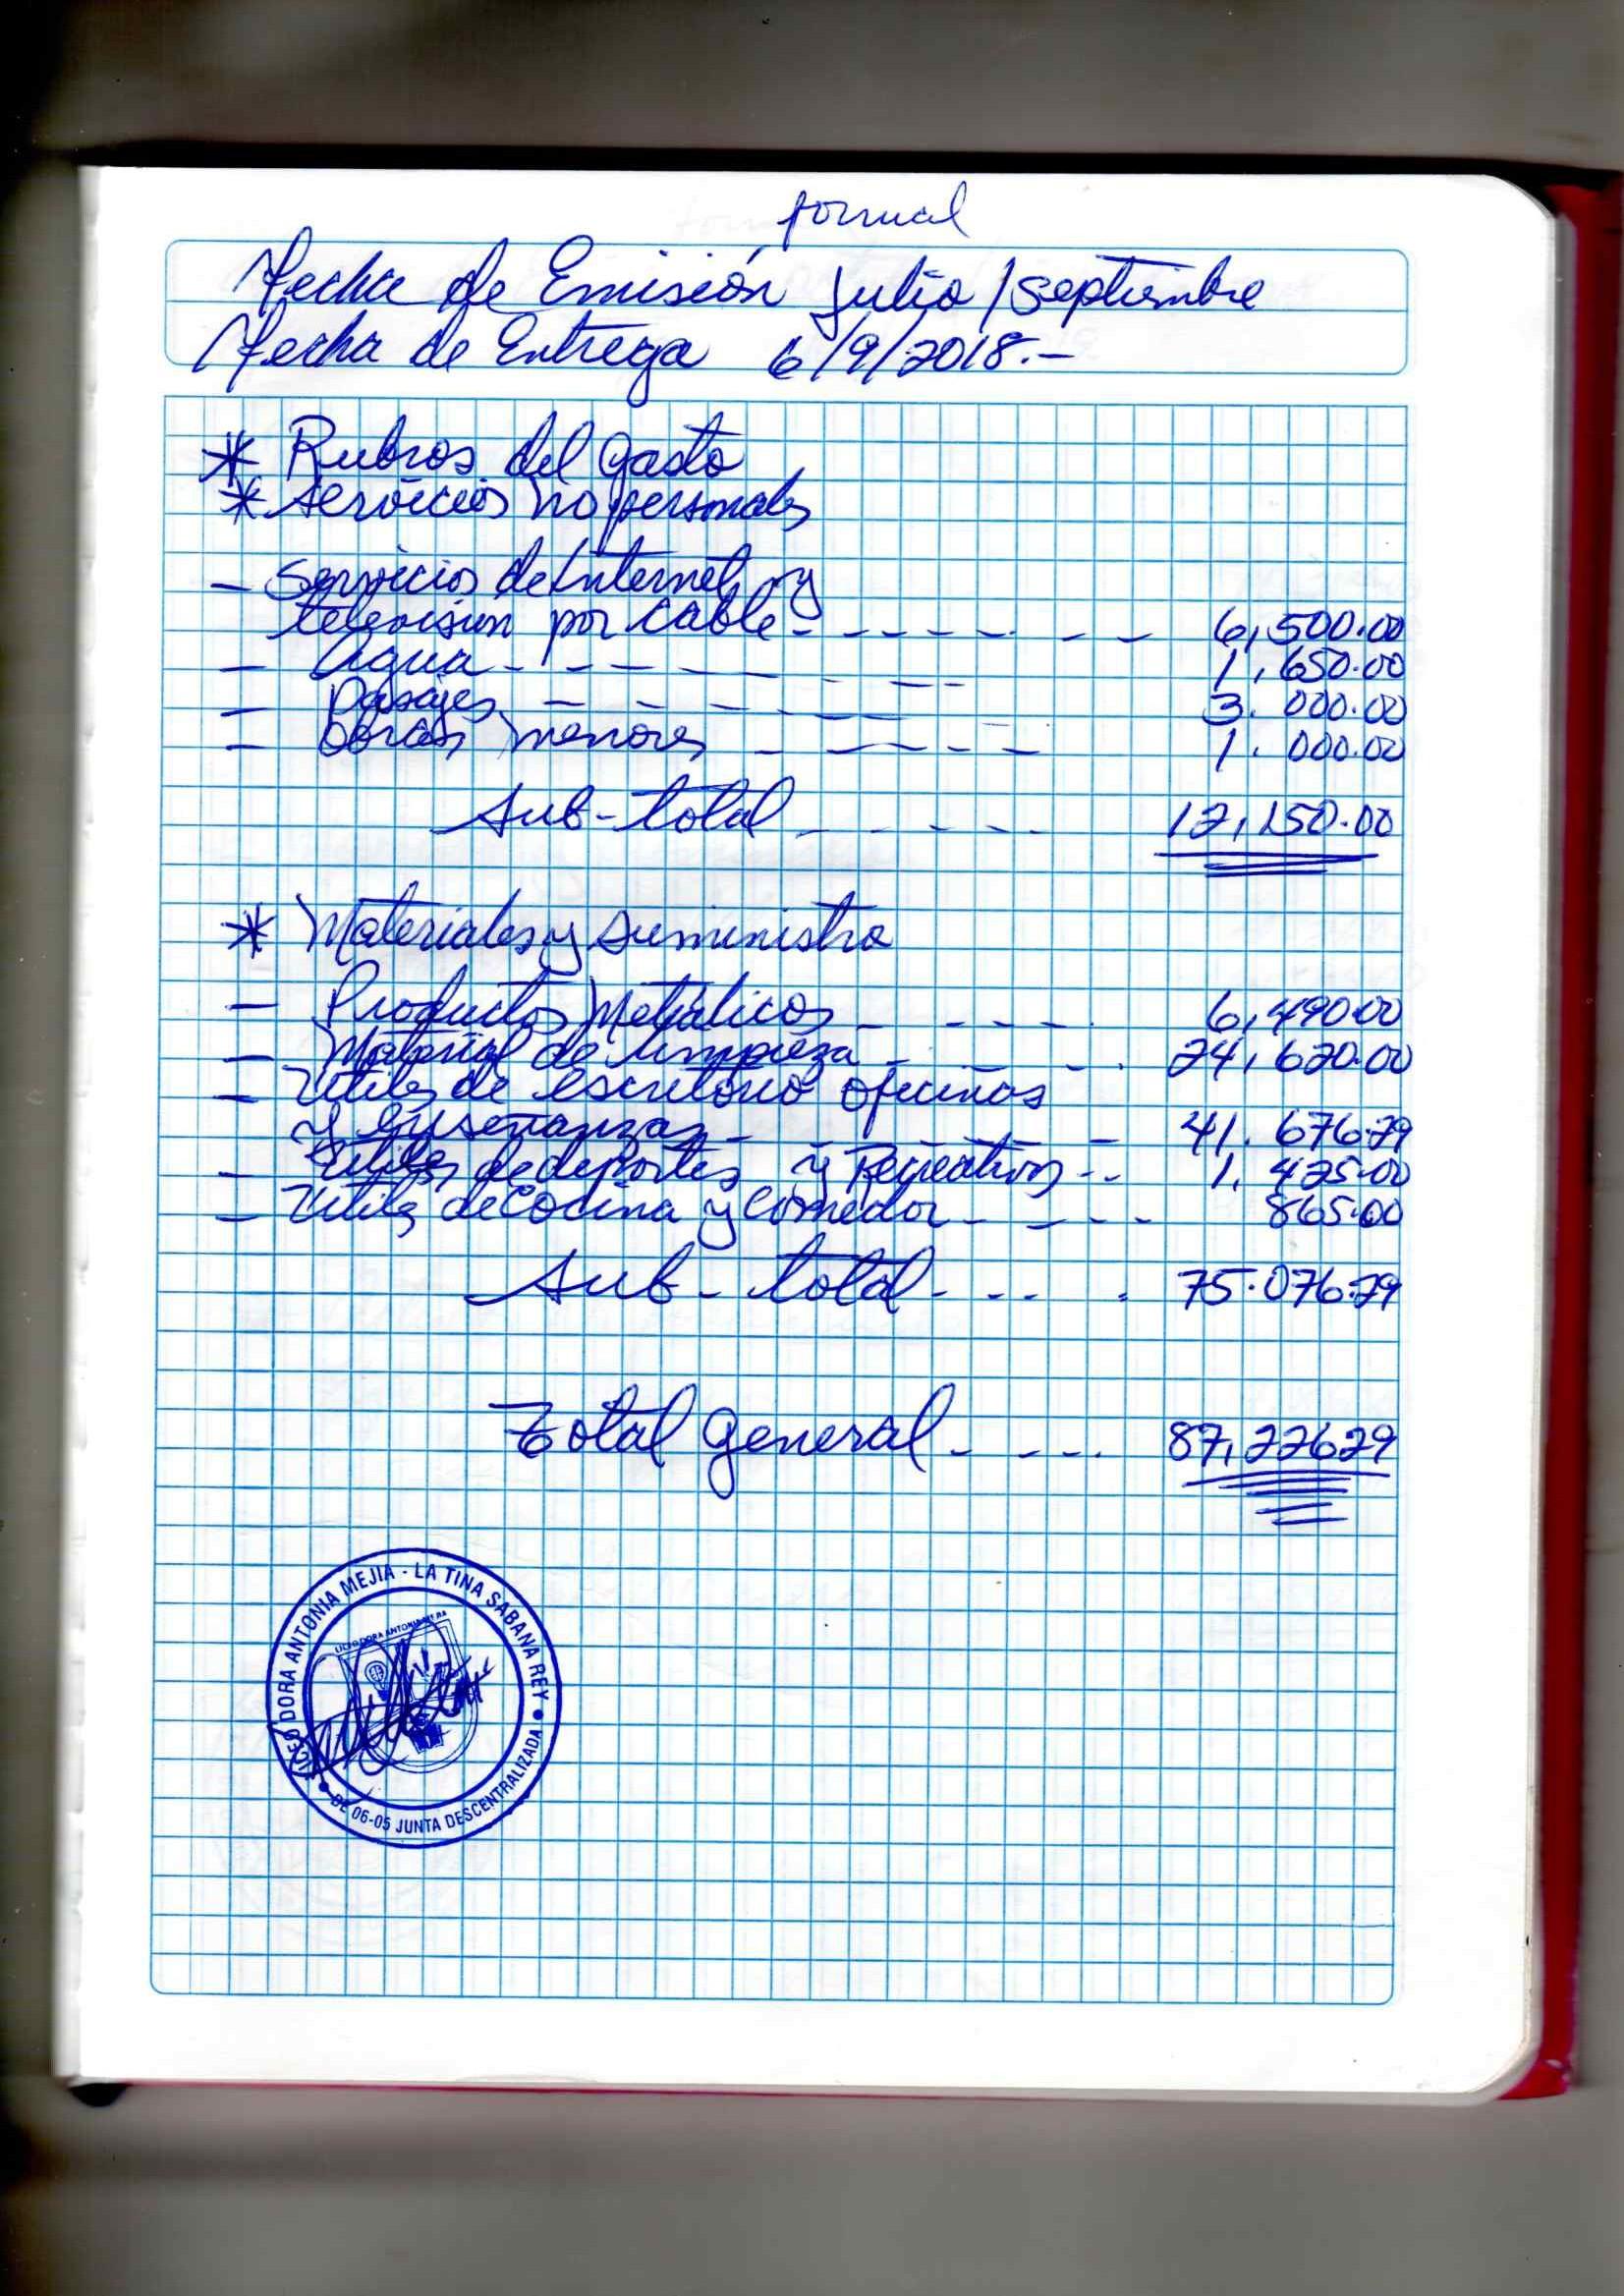 formal
Fecha de Emisión Julio/septiembre
Fecha de Entrega 6/9/2018.-
* Rubros del gasto
* Servicios no personales
- Servicios de Internet y
televisión por cable - - - - - - - - 6,500.00
- Agua - - - - - - - - 1,650.00
- Pasajes - - - - - - - 3.000.00
- Obras menores - - - - - - 1.000.00
Sub-total - - - - - 12,150.00
* Materiales y suministro
- Productos Metálicos - - - - - 6,490.00
- Material de limpieza - - - 24,620.00
- Utiles de escritorio oficinas
y enseñanzas - - - - 41.676.29
- Utiles de deportes y Recreativos - - 1.425.00
- Utiles de Cocina y Comedor - - - - 865.00
Sub-total - - - - 75.076.29
Total general - - - - 87,226.29
LICEO DORA ANTONIA MEJIA - LA TINA SABANA REY
DE 06-05 JUNTA DESCENTRALIZADA